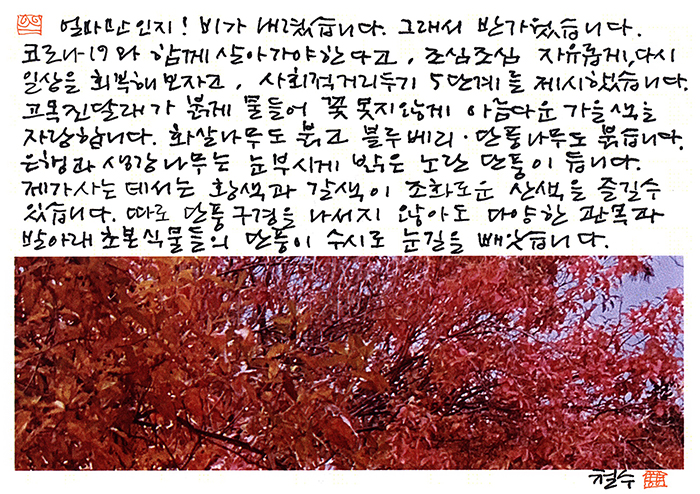 얼마만인지! 비가 내렸습니다. 그래서 반가웠습니다.
코로나-19와 함께 살아가야한다고, 조심조심 자유롭게, 다시
일상을 회복해보자고, 사회적거리두기 5단계를 제시했습니다.
고목진달래가 붉게 물들어 꽃 못지않게 아름다운 가을색을
자랑합니다. 화살나무도 붉고 블루베리·단풍나무도 붉습니다.
은행과 생강나무는 눈부시게 밝은 노란 단풍이 듭니다.
제가사는데서는 황색과 갈색이 조화로운 산색을 즐길수
있습니다. 따로 단풍구경을 나서지 않아도 다양한 관목과
발아래 초본식물들의 단풍이 수시로 눈길을 빼앗습니다.
철수